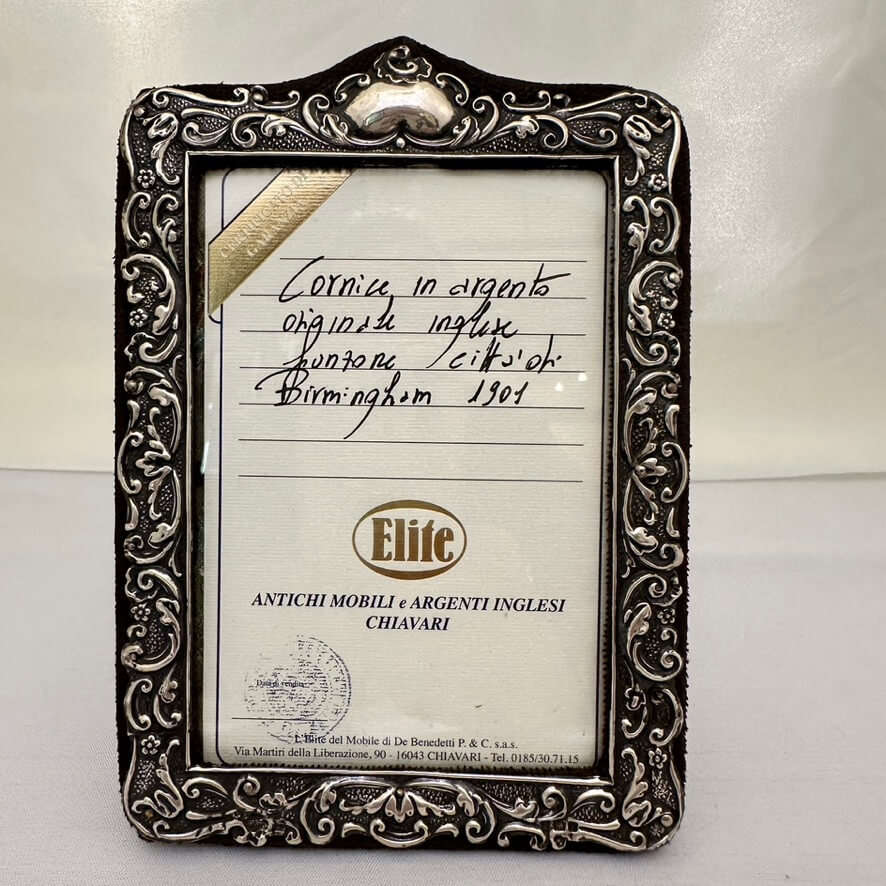 CERTIFICATO DI
GARANZIA
Cornice in argento
originale inglese
punzone citta' di
Birmingham 1901
Elite
ANTICHI MOBILI e ARGENTI INGLESI
CHIAVARI
Data di vendita
L'Elite del Mobile di De Benedetti P. & C. s.a.s.
Via Martiri della Liberazione, 90 - 16043 CHIAVARI - Tel. 0185/30.71.15